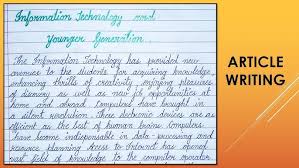 Information Technology and
Younger Generation
The Information Technology has provided new
avenues to the students for acquiring knowledge,
enhancing thrills of creativity, enjoying pleasures
of discovery as well as new job opportunities at
home and abroad. Computers have brought in
a silent revolution. These electronic devices are as
efficient as the best of human brains. Computers
have become indispensable in data processing and
resource planning. Access to Internet has opened
vast field of knowledge to the computer operator
ARTICLE
WRITING